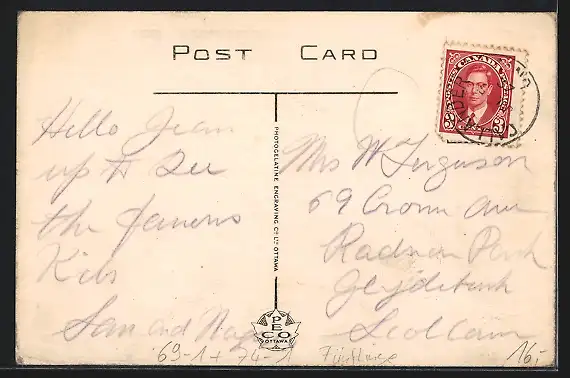 POST CARD
CANADA
3 3
Hello Jean
up to See
the famous
Kids
Sam and
PHOTOGELATINE ENGRAVING CO. LTD. OTTAWA
PECO
OTTAWA
Mrs W Ferguson
69 Crown Ave
Radnor Park
Clydebank
Scotland
69-1+74-1
Fünflinge
16,-